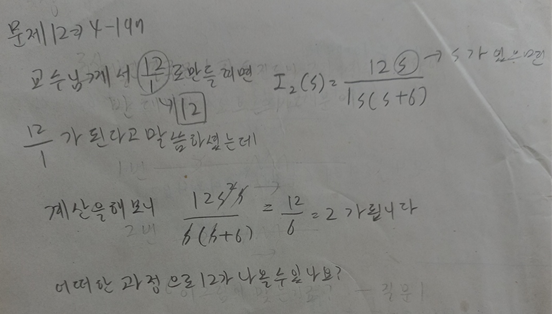 문제12번 4-19번
교수님께서 12/1 로만들려면 I₂(s)= 12ⓢ/1s(s+6) → s가 있으면
니 12
12/1 가 된다고 말씀하셨는데
계산을해보니 12s²s/s(s+6) = 12/6 = 2 가됩니다
어떠한 과정으로12가 나올수있나요?